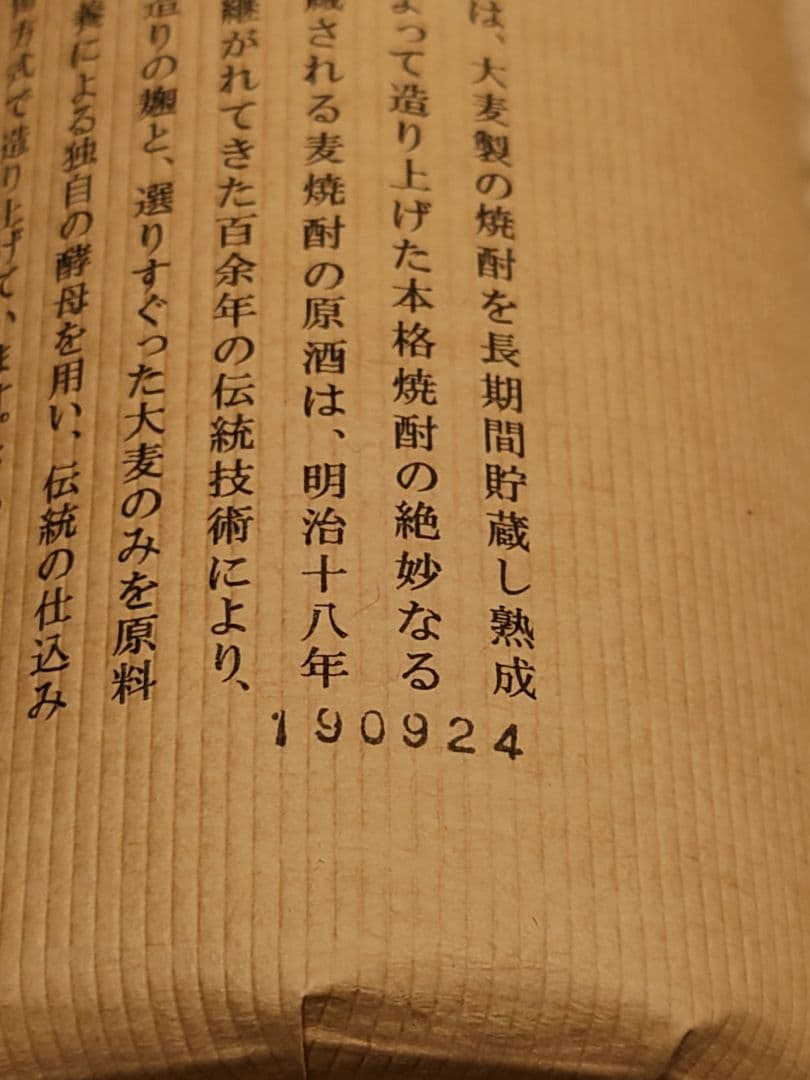 は、大麦製の焼酎を長期間貯蔵し熟成
よって造り上げた本格焼酎の絶妙なる
蔵される麦焼酎の原酒は、明治十八年
継がれてきた百余年の伝統技術により、
造りの麹と、選りすぐった大麦のみを原料
養による独自の酵母を用い、伝統の仕込み
方式で造り上げて、ます。
190924